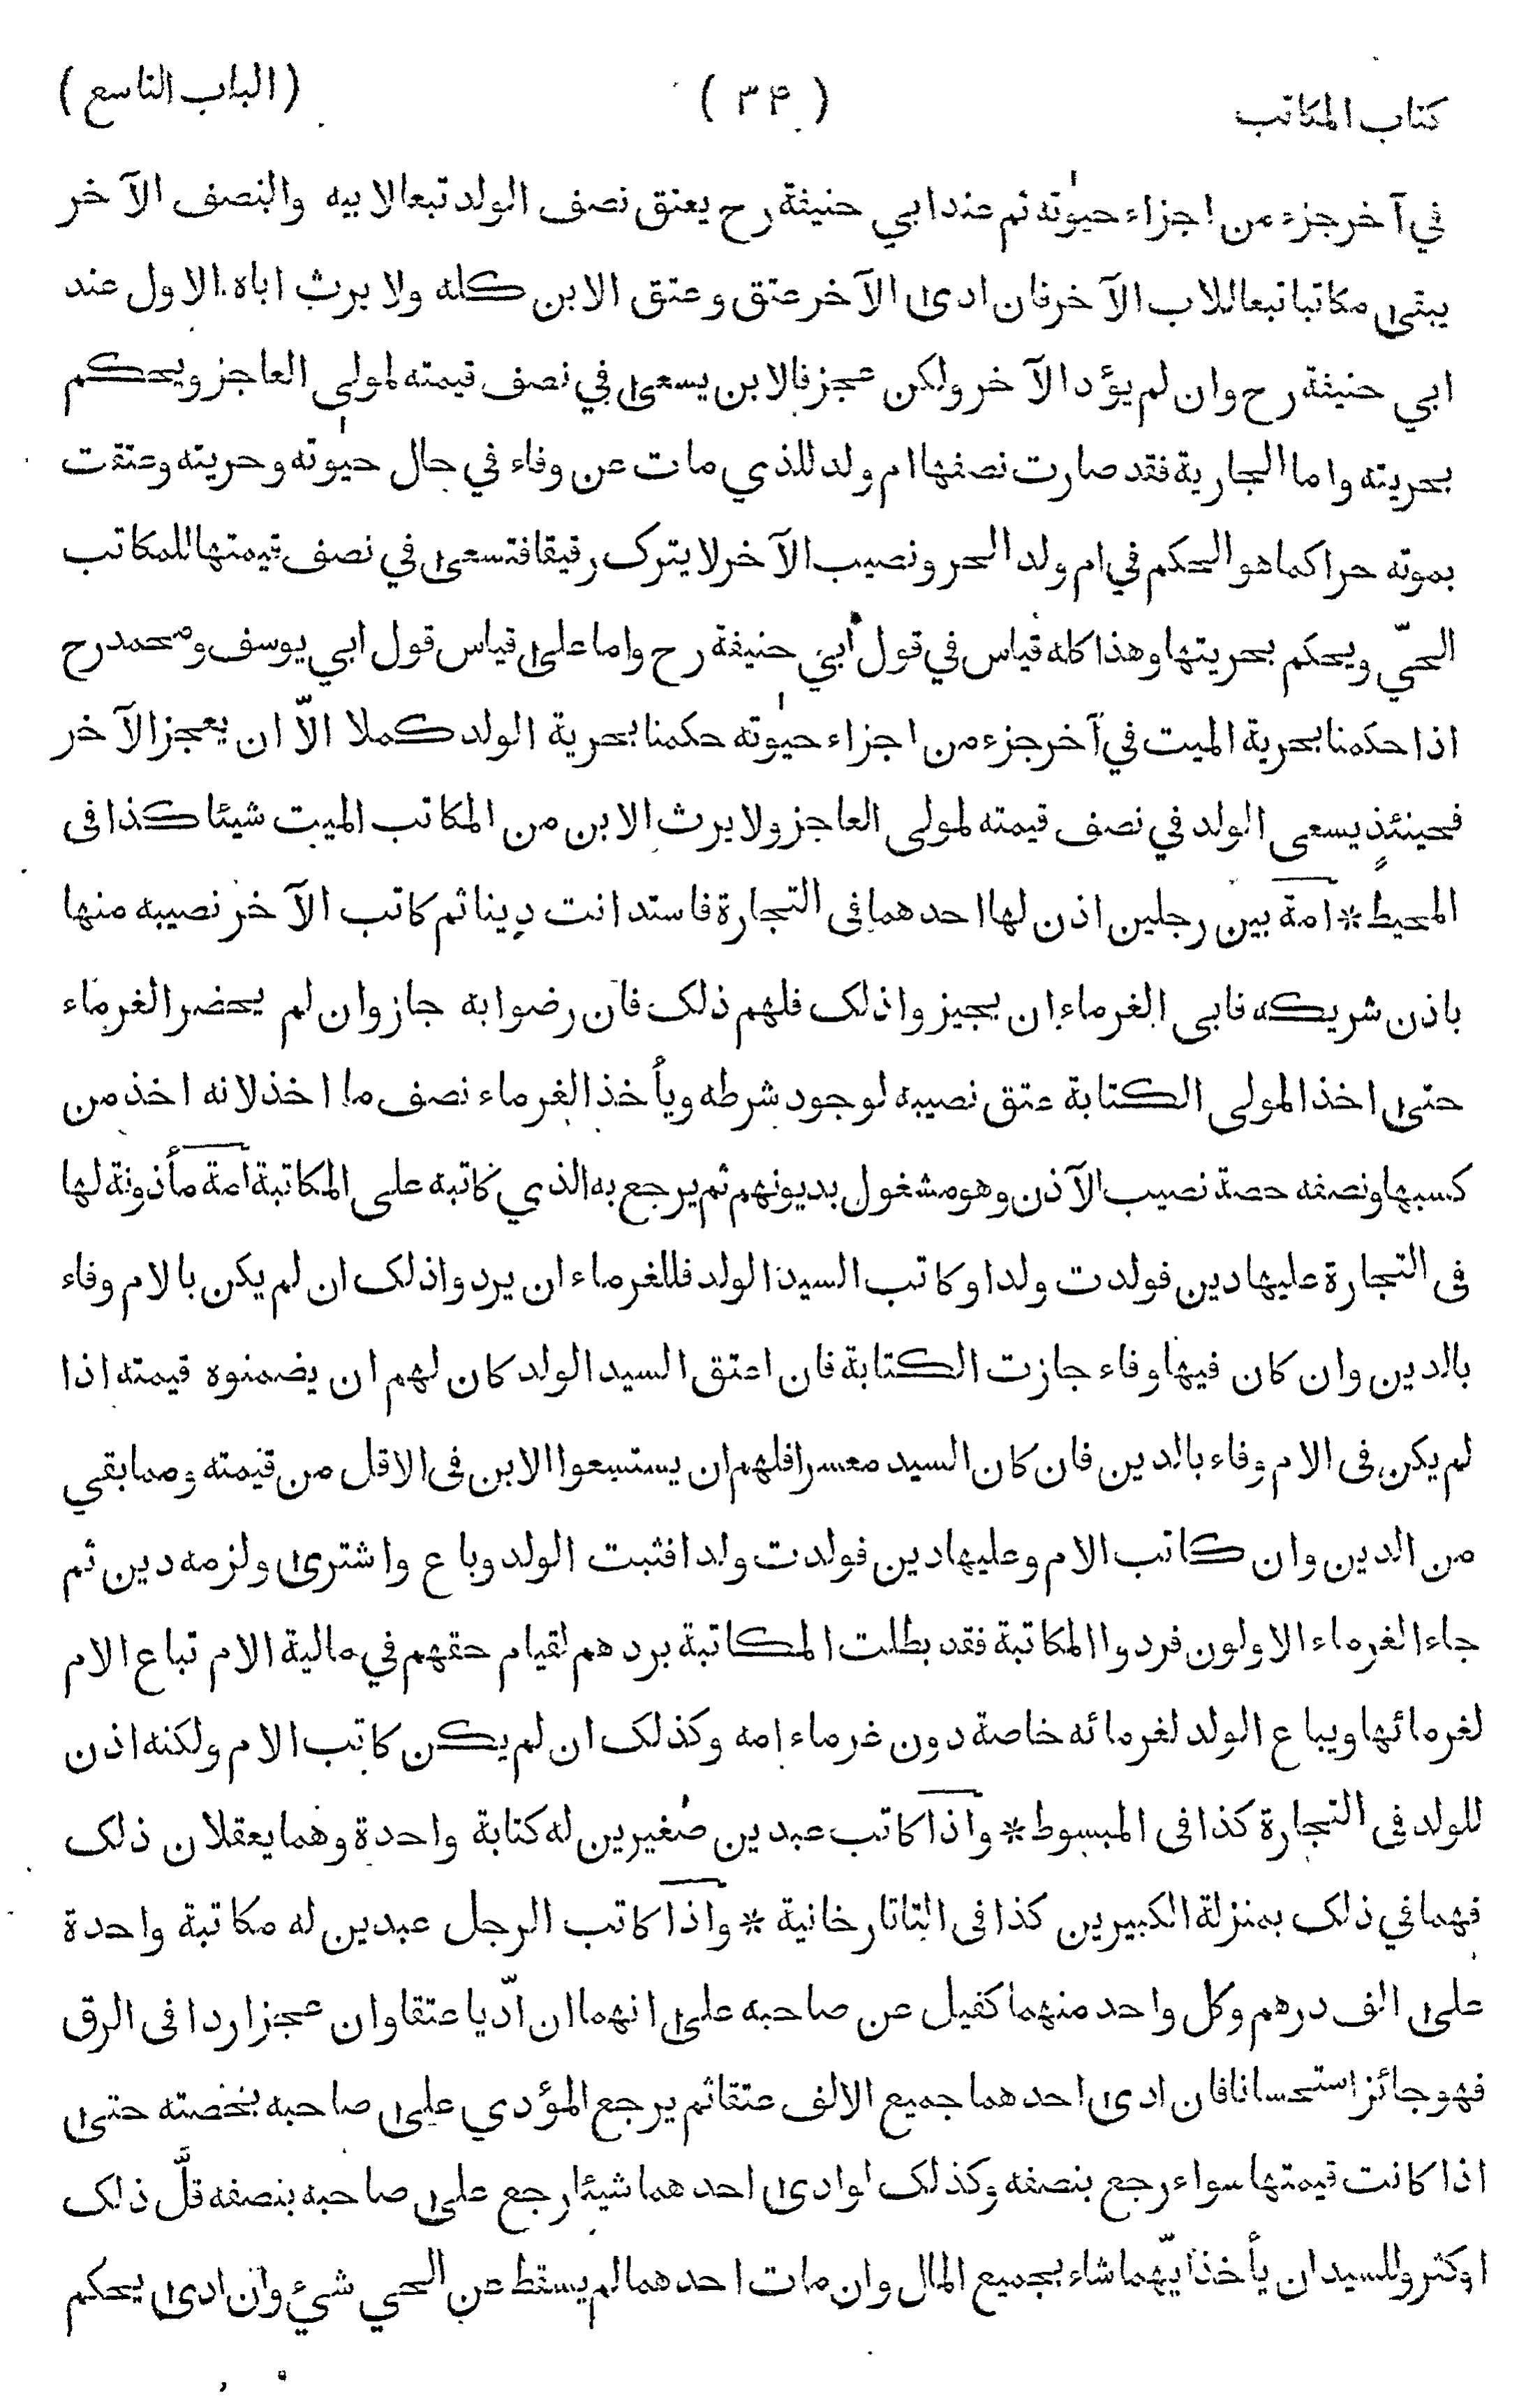 كتاب المكاتب ( ٣۴ ) (الباب التاسع)
في آخر جزء من اجزاء حيوته ثم عند ابي حنيفة رح يعتق نصف الولد تبعا لابيه والنصف الآخر
يبقى مكاتبا تبعا للاب الآخر فان ادى الآخر عتق وعتق الابن كله ولا يرث اباه الاول عند
ابي حنيفة رح وان لم يؤد الآخر ولكن عجز فالابن يسعى في نصف قيمته لمولى العاجز ويحكم
بحريته واما الجارية فقد صارت نصفها ام ولد للذي مات عن وفاء في حال حيوته وحريته وعتقت
بموته حرا كما هو الحكم في ام ولد الحر ونصيب الآخر لا يترك رقيقا فتسعى في نصف قيمتها للمكاتب
الحيّ ويحكم بحريتها وهذا كله قياس في قول أبي حنيفة رح واما على قياس قول ابي يوسف ومحمد رح
اذا حكمنا بحرية الميت في آخر جزء من اجزاء حيوته حكمنا بحرية الولد كملا الاّ ان يعجز الآخر
فحينئذٍ يسعى الولد في نصف قيمته لمولى العاجز ولا يرث الابن من المكاتب الميت شيئا كذا فى
المحيط * امة بين رجلين اذن لها احدهما فى التجارة فاستدانت دينا ثم كاتب الآخر نصيبه منها
باذن شريكه فابى الغرماء ان يجيزوا ذلك فلهم ذلك فان رضوا به جاز وان لم يحضر الغرماء
حتى اخذ المولى الكتابة عتق نصيبه لوجود شرطه ويأخذ الغرماء نصف ما اخذ لانه اخذ من
كسبها ونصفه حصة نصيب الآذن وهو مشغول بديونهم ثم يرجع به الذي كاتبه على المكاتبة امة مأذونة لها
فى التجارة عليها دين فولدت ولدا وكاتب السيد الولد فللغرماء ان يردوا ذلك ان لم يكن بالام وفاء
بالدين وان كان فيها وفاء جازت الكتابة فان اعتق السيد الولد كان لهم ان يضمنوه قيمته اذا
لم يكن فى الام وفاء بالدين فان كان السيد معسرا فلهم ان يستسعوا الابن فى الاقل من قيمته ومما بقي
من الدين وان كاتب الام وعليها دين فولدت ولدا فثبت الولد وباع واشترى ولزمه دين ثم
جاء الغرماء الاولون فردوا المكاتبة فقد بطلت المكاتبة بردهم لقيام حقهم في مالية الام تباع الام
لغرمائها ويباع الولد لغرمائه خاصة دون غرماء امه وكذلك ان لم يكن كاتب الام ولكنه اذن
للولد في التجارة كذا فى المبسوط * واذا كاتب عبدين صغيرين له كتابة واحدة وهما يعقلان ذلك
فهما في ذلك بمنزلة الكبيرين كذا فى التاتارخانية * واذا كاتب الرجل عبدين له مكاتبة واحدة
على الف درهم وكل واحد منهما كفيل عن صاحبه على انهما ان ادّيا عتقا وان عجزا ردا فى الرق
فهو جائز استحسانا فان ادى احدهما جميع الالف عتقا ثم يرجع المؤدي على صاحبه بحصته حتى
اذا كانت قيمتها سواء رجع بنصفه وكذلك لو ادى احدهما شيئا رجع على صاحبه بنصفه قلَّ ذلك
او كثر وللسيد ان يأخذ ايّهما شاء بجميع المال وان مات احدهما لم يسقط عن الحي شيئ وان ادى يحكم